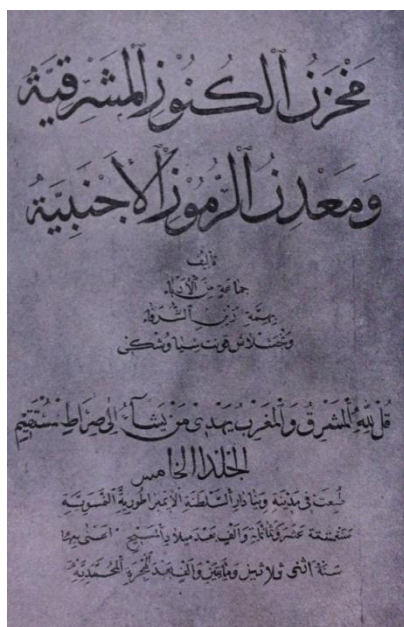 مَخْزَنُ ٱلْكُنُوزِ ٱلْمَشْرِقِيَّةِ
وَمَعْدِنُ ٱلرُّمُوزِ ٱلْأَجْنَبِيَّةِ
تأليف
جماعةٍ مِنَ ٱلْأُدَبَاءِ
بِهِمَّةِ زَيْنِ ٱلشُّرَفَاءِ
قُلْ لِلّٰهِ ٱلْمَشْرِقُ وَٱلْمَغْرِبُ يَهْدِي مَنْ يَشَآءُ إِلَى صِرَاطٍ مُسْتَقِيمٍ
الجلد الخامس
طُبِعَتْ فِي مَدِينَةِ وِيَنَا دَارِ ٱلسَّلْطَنَةِ ٱلْإِيمْبَرَاطُورِيَّةِ ٱلنَّمْسَوِيَّةِ
عَشَرَ وَثَمَانِمائة وَأَلْفٍ بَعْدَ مِيلَادِ ٱلْمَسِيحِ
سَنَةَ ٱثْنَى ثَلَاثِينَ وَمِأَتَيْنِ وَأَلْفٍ بَعْدَ ٱلْهِجْرَةِ ٱلْمُحَمَّدِيَّةِ